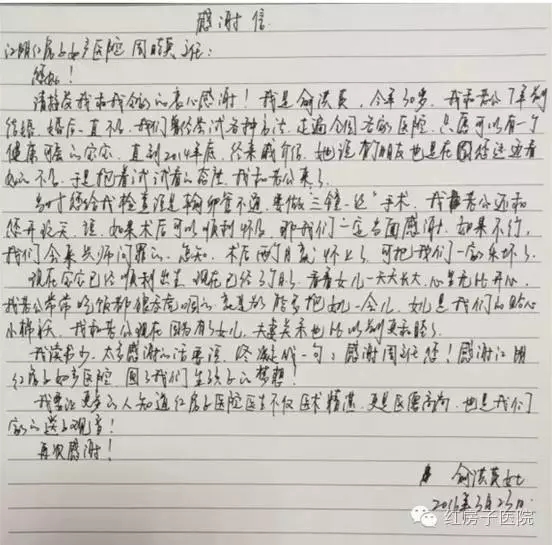 感谢信
江阴红房子妇产医院周晓英主任:
您好!
请接受我和我全家的衷心感谢!我是俞洪英,今年30岁,我和老公7年前
结婚,婚后一直不孕,我们曾经尝试各种方法,走遍全国各家医院,只愿可以有一个
健康可爱的宝宝。直到2014年底,经亲戚介绍,她说有朋友也是在周主任这边看
好的不孕,于是抱着试试看的想法,我和老公来了。
当时您给我检查说是输卵管不通,要做“三镜一丝”手术,我老公还和
您开玩笑说,如果术后可以顺利怀孕,那我们一定当面感谢,如果不行,
我们会来兴师问罪的。怎知,术后两个月真的怀上了,可把我们一家乐坏了。
现在宝宝已经顺利出生,现在已经3个月,看着女儿一天天长大,心里无比开心,
我老公常常吃饭都狼吞虎咽的,就是为了能多抱女儿一会儿,女儿是我们的贴心
小棉袄,我和老公现在因为有了女儿,夫妻关系也比以前更和睦了。
我读书少,太多感谢的话要说,终凝成一句:感谢周主任您!感谢江阴
红房子妇产医院,圆了我们生孩子的梦想!
我要让更多的人知道红房子医院医生不仅医术精湛,更是医德高尚,也是我们
家的送子观音!
再次感谢!
俞洪英女士
2016年3月23日
红房子医院